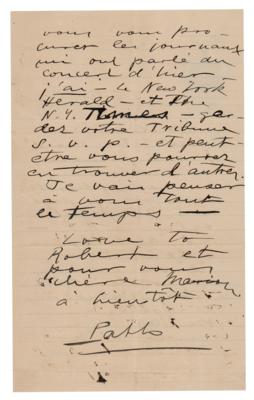 vous vous pro-
curer les journaux
qui ont parlé du
concert d'hier
j'ai - le New York
Herald - et the
N. Y. Times - gar-
dez votre Tribune
S. V. P. - et peut-
être vous pourrez
en trouver d'autres.
Je vais penser
à vous tout
le temps —
Love to
Robert et
pour vous
chère
à bientôt
Pablo